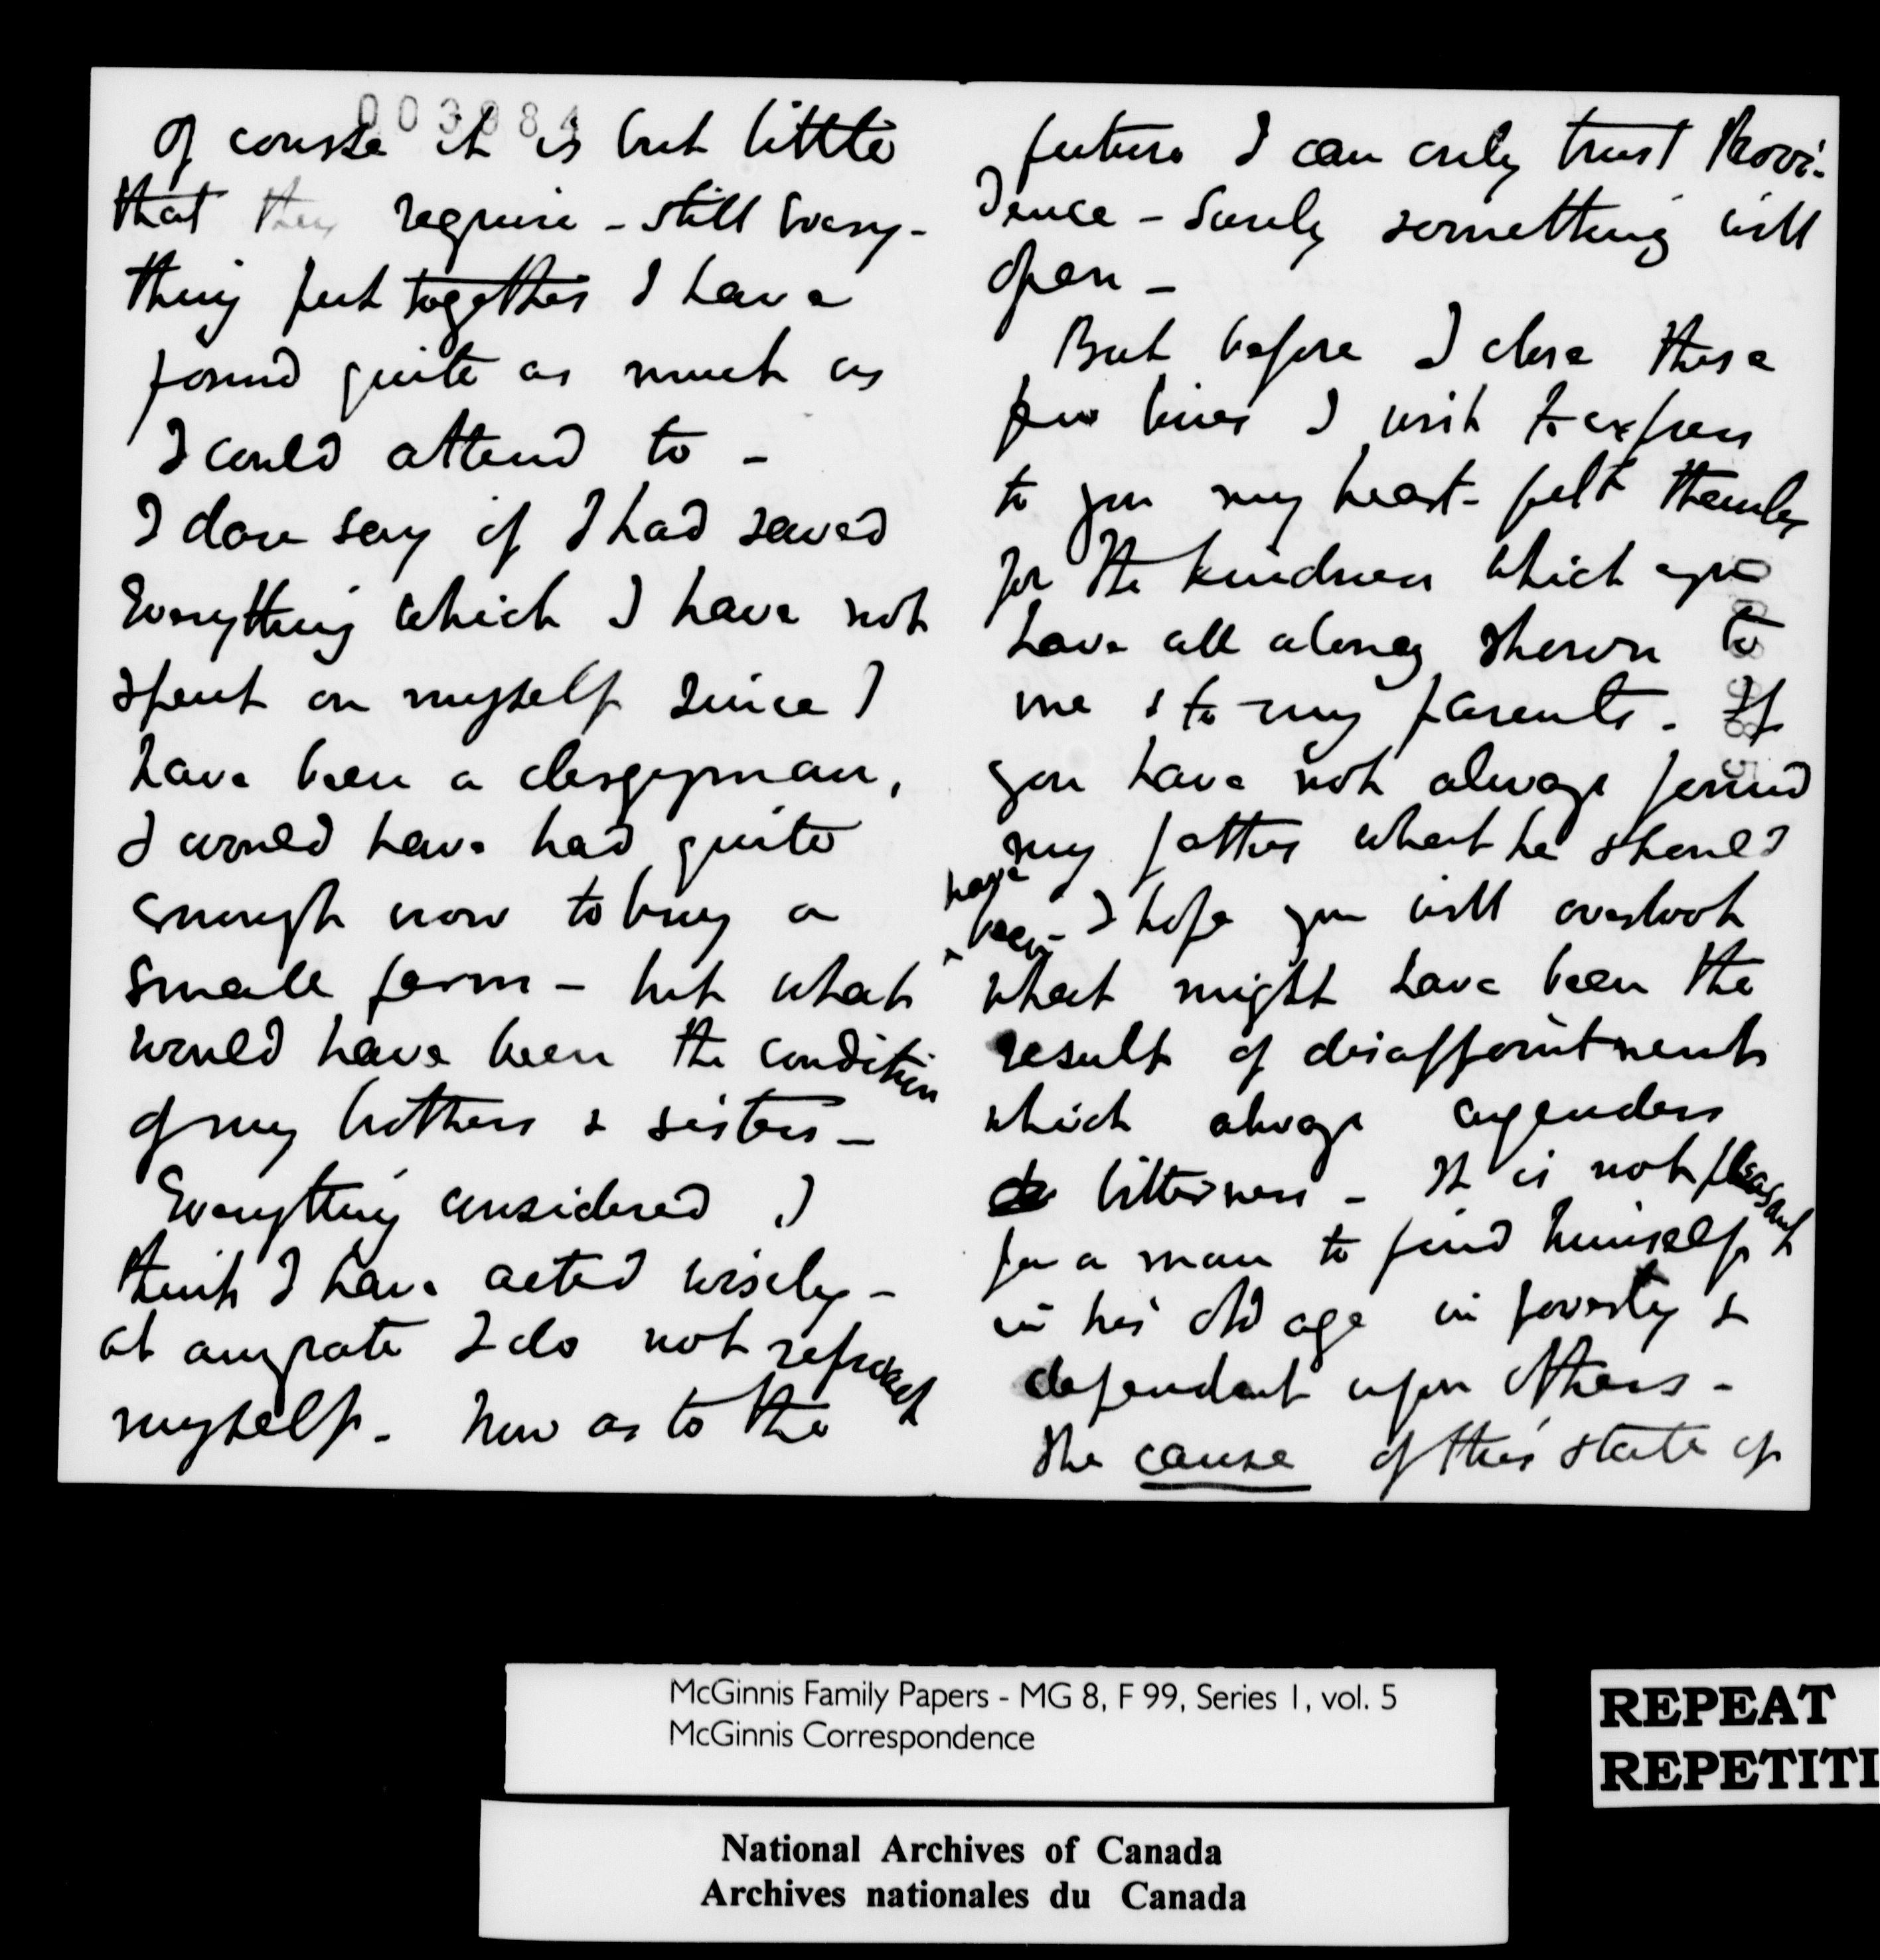 003984
Of course it is but little
that they require - still Every-
thing put together I have
found quite as much as
I could attend to -
I dare say if I had saved
Everything which I have not
spent on myself since I
have been a clergyman,
I would have had quite
enough now to buy a
small farm - but what
would have been the condition
of my brothers & sisters -
Everything considered I
think I have acted wisely -
at anyrate I do not reproach
myself. Now as to the
future I can only trust Provi-
dence - Surely something will
open -
But before I close these
few lines I wish to express
to you my heart-felt thanks
for the kindness which you
have all along shown to
me & to my parents. If
you have not always found
my father what he should
have
been - I hope you will overlook
what might have been the
result of disappointments
which always engenders
bitterness - It is not pleasant
for a man to find himself
in his old age in poverty &
dependent upon others -
The cause of this state of
McGinnis Family Papers - MG 8, F 99, Series 1, vol. 5
McGinnis Correspondence
REPEAT
REPETITI
National Archives of Canada
Archives nationales du Canada